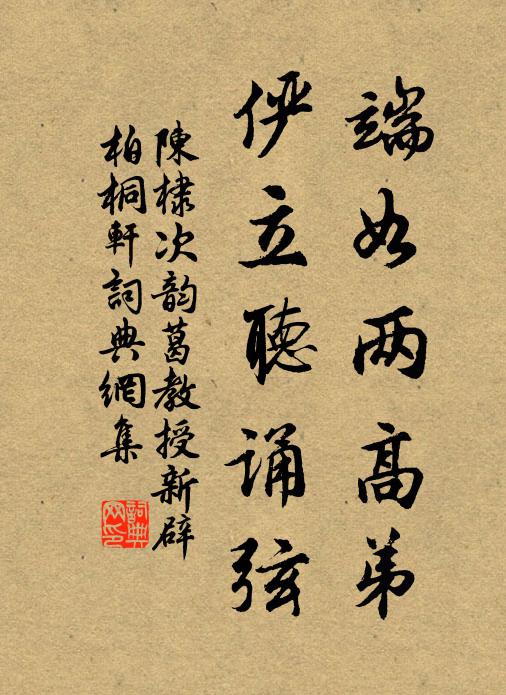 端如两高弟
俨立聽诵弦
陳棣次韵葛教授新辟
柏桐軒詞典網集
詞典网印